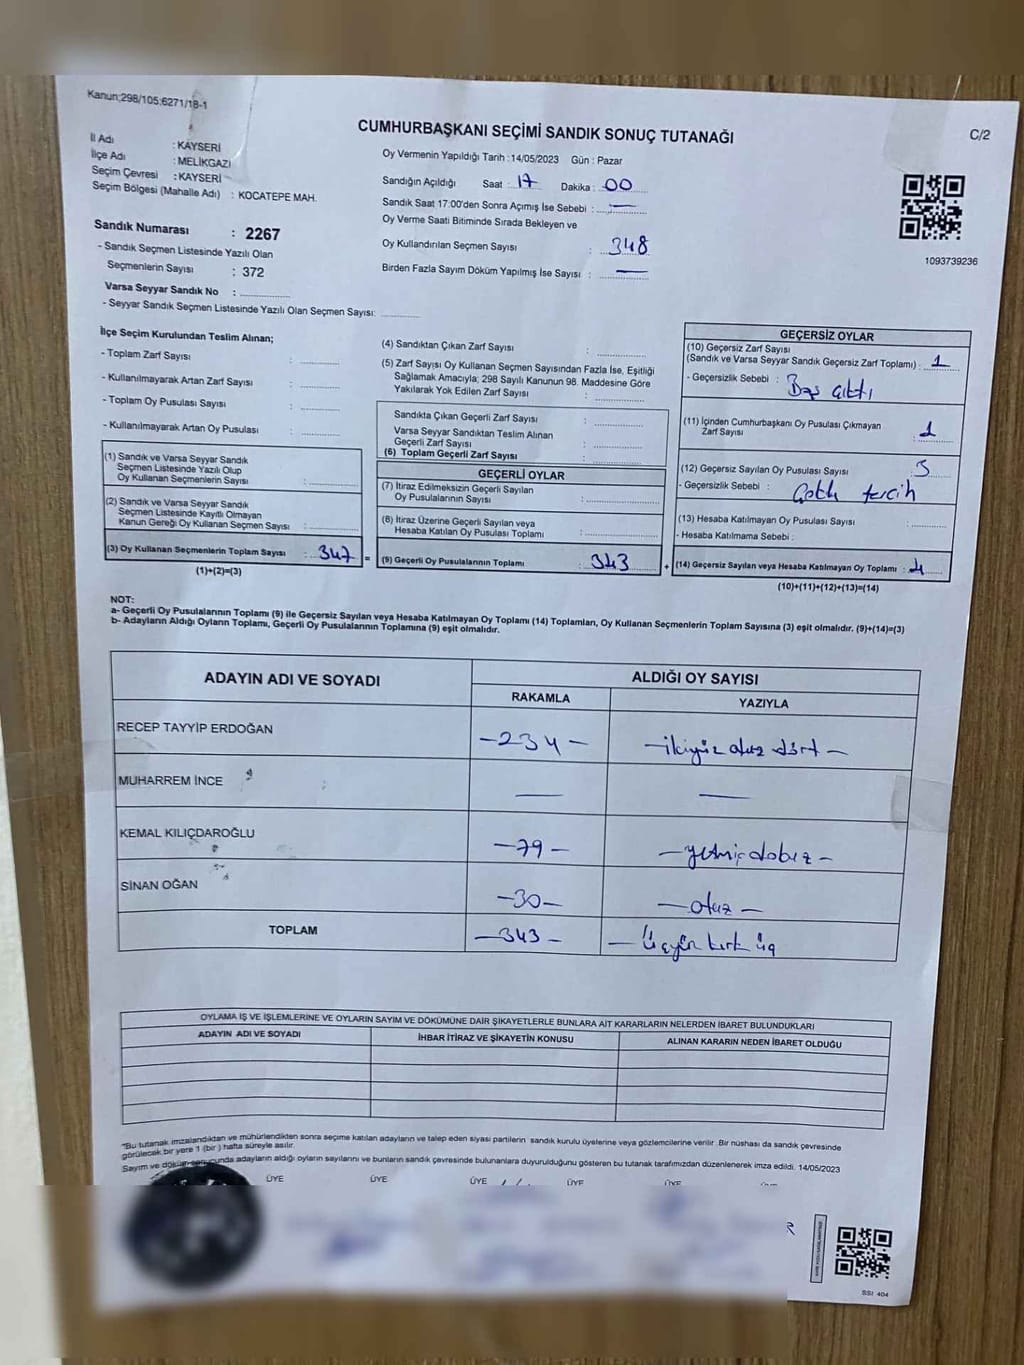 Kanun;298/105:6271/18-1
CUMHURBAŞKANI SEÇİMİ SANDIK SONUÇ TUTANAĞI
C/2
İl Adı : KAYSERİ
İlçe Adı : MELİKGAZİ
Seçim Çevresi : KAYSERİ
Seçim Bölgesi (Mahalle Adı) : KOCATEPE MAH.
Oy Vermenin Yapıldığı Tarih : 14/05/2023 Gün : Pazar
Sandığın Açıldığı Saat : 17 Dakika : 00
Sandık Saat 17:00'den Sonra Açımış İse Sebebi : —
Oy Verme Saati Bitiminde Sırada Bekleyen ve
Oy Kullandırılan Seçmen Sayısı : 348
Birden Fazla Sayım Döküm Yapılmış İse Sayısı : —
1093739236
Sandık Numarası : 2267
- Sandık Seçmen Listesinde Yazılı Olan
Seçmenlerin Sayısı : 372
Varsa Seyyar Sandık No :
- Seyyar Sandık Seçmen Listesinde Yazılı Olan Seçmen Sayısı:
İlçe Seçim Kurulundan Teslim Alınan;
- Toplam Zarf Sayısı :
- Kullanılmayarak Artan Zarf Sayısı :
- Toplam Oy Pusulası Sayısı :
- Kullanılmayarak Artan Oy Pusulası :
(1) Sandık ve Varsa Seyyar Sandık
Seçmen Listesinde Yazılı Olup
Oy Kullanan Seçmenlerin Sayısı :
(2) Sandık ve Varsa Seyyar Sandık
Seçmen Listesinde Kayıtlı Olmayan
Kanun Gereği Oy Kullanan Seçmen Sayısı :
(3) Oy Kullanan Seçmenlerin Toplam Sayısı : 347 =
(1)+(2)=(3)
(4) Sandıktan Çıkan Zarf Sayısı :
(5) Zarf Sayısı Oy Kullanan Seçmen Sayısından Fazla İse, Eşitliği
Sağlamak Amacıyla; 298 Sayılı Kanunun 98. Maddesine Göre
Yakılarak Yok Edilen Zarf Sayısı :
Sandıkta Çıkan Geçerli Zarf Sayısı :
Varsa Seyyar Sandıktan Teslim Alınan
Geçerli Zarf Sayısı :
(6) Toplam Geçerli Zarf Sayısı :
GEÇERLİ OYLAR
(7) İtiraz Edilmeksizin Geçerli Sayılan
Oy Pusulalarının Sayısı :
(8) İtiraz Üzerine Geçerli Sayılan veya
Hesaba Katılan Oy Pusulası Toplamı :
(9) Geçerli Oy Pusulalarının Toplamı : 343 +
GEÇERSİZ OYLAR
(10) Geçersiz Zarf Sayısı
(Sandık ve Varsa Seyyar Sandık Geçersiz Zarf Toplamı) : 1
- Geçersizlik Sebebi : Boş çıktı
(11) İçinden Cumhurbaşkanı Oy Pusulası Çıkmayan
Zarf Sayısı : 1
(12) Geçersiz Sayılan Oy Pusulası Sayısı : 3
- Geçersizlik Sebebi : Çoklu tercih
(13) Hesaba Katılmayan Oy Pusulası Sayısı :
- Hesaba Katılmama Sebebi :
(14) Geçersiz Sayılan veya Hesaba Katılmayan Oy Toplamı : 4
(10)+(11)+(12)+(13)=(14)
NOT:
a- Geçerli Oy Pusulalarının Toplamı (9) ile Geçersiz Sayılan veya Hesaba Katılmayan Oy Toplamı (14) Toplamları, Oy Kullanan Seçmenlerin Toplam Sayısına (3) eşit olmalıdır. (9)+(14)=(3)
b- Adayların Aldığı Oyların Toplamı, Geçerli Oy Pusulalarının Toplamına (9) eşit olmalıdır.
ADAYIN ADI VE SOYADI ALDIĞI OY SAYISI
RAKAMLA YAZIYLA
RECEP TAYYİP ERDOĞAN -234- -ikiyüz otuz dört-
MUHARREM İNCE — —
KEMAL KILIÇDAROĞLU -79- -yetmiş dokuz-
SİNAN OĞAN -30- -otuz-
TOPLAM -343- - Üçyüz kırk üç
OYLAMA İŞ VE İŞLEMLERİNE VE OYLARIN SAYIM VE DÖKÜMÜNE DAİR ŞİKAYETLERLE BUNLARA AİT KARARLARIN NELERDEN İBARET BULUNDUKLARI
ADAYIN ADI VE SOYADI İHBAR İTİRAZ VE ŞİKAYETİN KONUSU ALINAN KARARIN NEDEN İBARET OLDUĞU
"Bu tutanak imzalandıktan ve mühürlendikten sonra seçime katılan adayların ve talep eden siyasi partilerin sandık kurulu üyelerine veya gözlemcilerine verilir. Bir nüshası da sandık çevresinde
görülecek bir yere 1 (bir) hafta süreyle asılır.
Sayım ve döküm sonucunda adayların aldığı oyların sayılarını ve bunların sandık çevresinde bulunanlara duyurulduğunu gösteren bu tutanak tarafımızdan düzenlenerek imza edildi. 14/05/2023
ÜYE ÜYE ÜYE ÜYE ÜYE
SSI 404